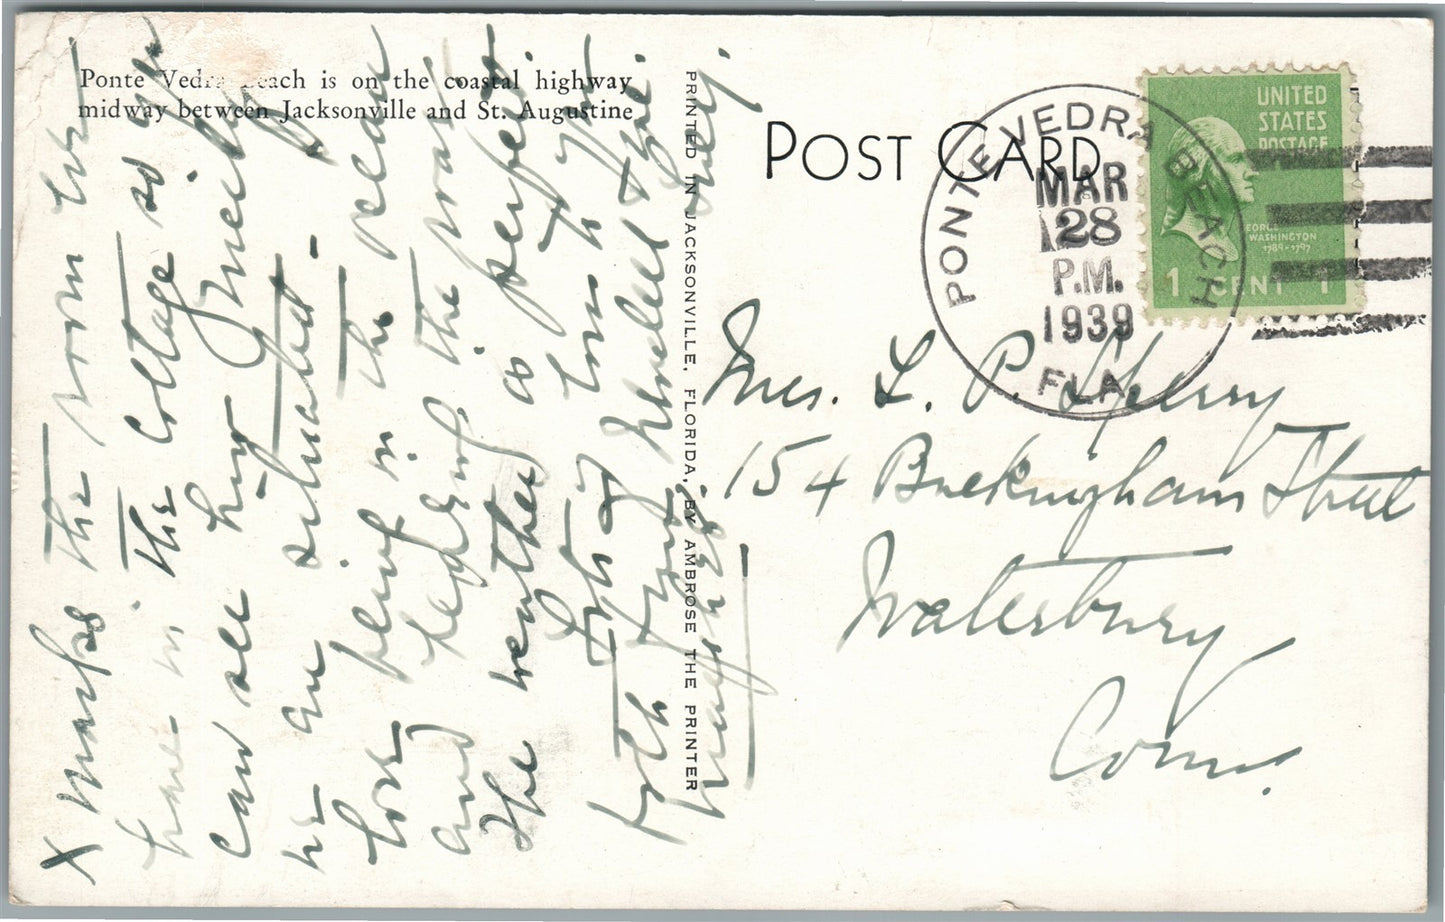 Ponte Vedra Beach is on the coastal highway
midway between Jacksonville and St. Augustine
POST CARD
PONTE VEDRA BEACH
MAR
28
P.M.
1939
FLA.
UNITED
STATES
POSTAGE
GEORGE
WASHINGTON
1789-1797
1 CENT 1
PRINTED IN JACKSONVILLE, FLORIDA, BY AMBROSE THE PRINTER
Mrs. L. P. Sperry
154 Buckingham Street
Waterbury
Conn.
X marks the room we
have in the cottage so you
can see how nicely
we are situated -
Love being in the ocean
and hearing the roar.
The weather is perfect.
Lots of love to you
both from